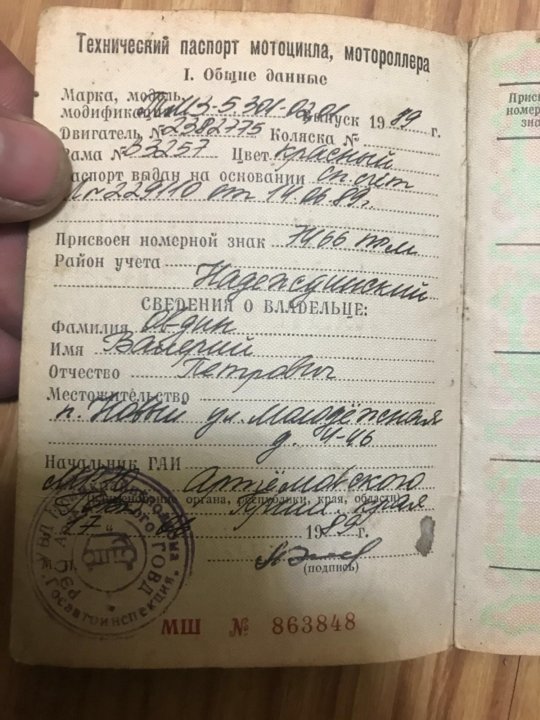 Технический паспорт мотоцикла, мотороллера
I. Общие данные
Марка, модель,
модификация ТМЗ-5301-0201 выпуск 1989 г.
Двигатель № 2302775 Коляска №
Рама № 33257 Цвет красный
Паспорт выдан на основании сп. счет
№ 229110 от 14.06.89г.
Присвоен номерной знак 7966
Район учета
Надеждинский
СВЕДЕНИЯ О ВЛАДЕЛЬЦЕ:
Фамилия
Имя Валерий
Отчество Петрович
Местожительство
п. Новый ул. Молодёжная
д.
Начальник ГАИ
Артёмовского
(наименование органа, республики, края, области)
края
17 1989 г.
(подпись)
ГОВД
Госавтоинспекция
МШ № 863848
Присвоен
номерной